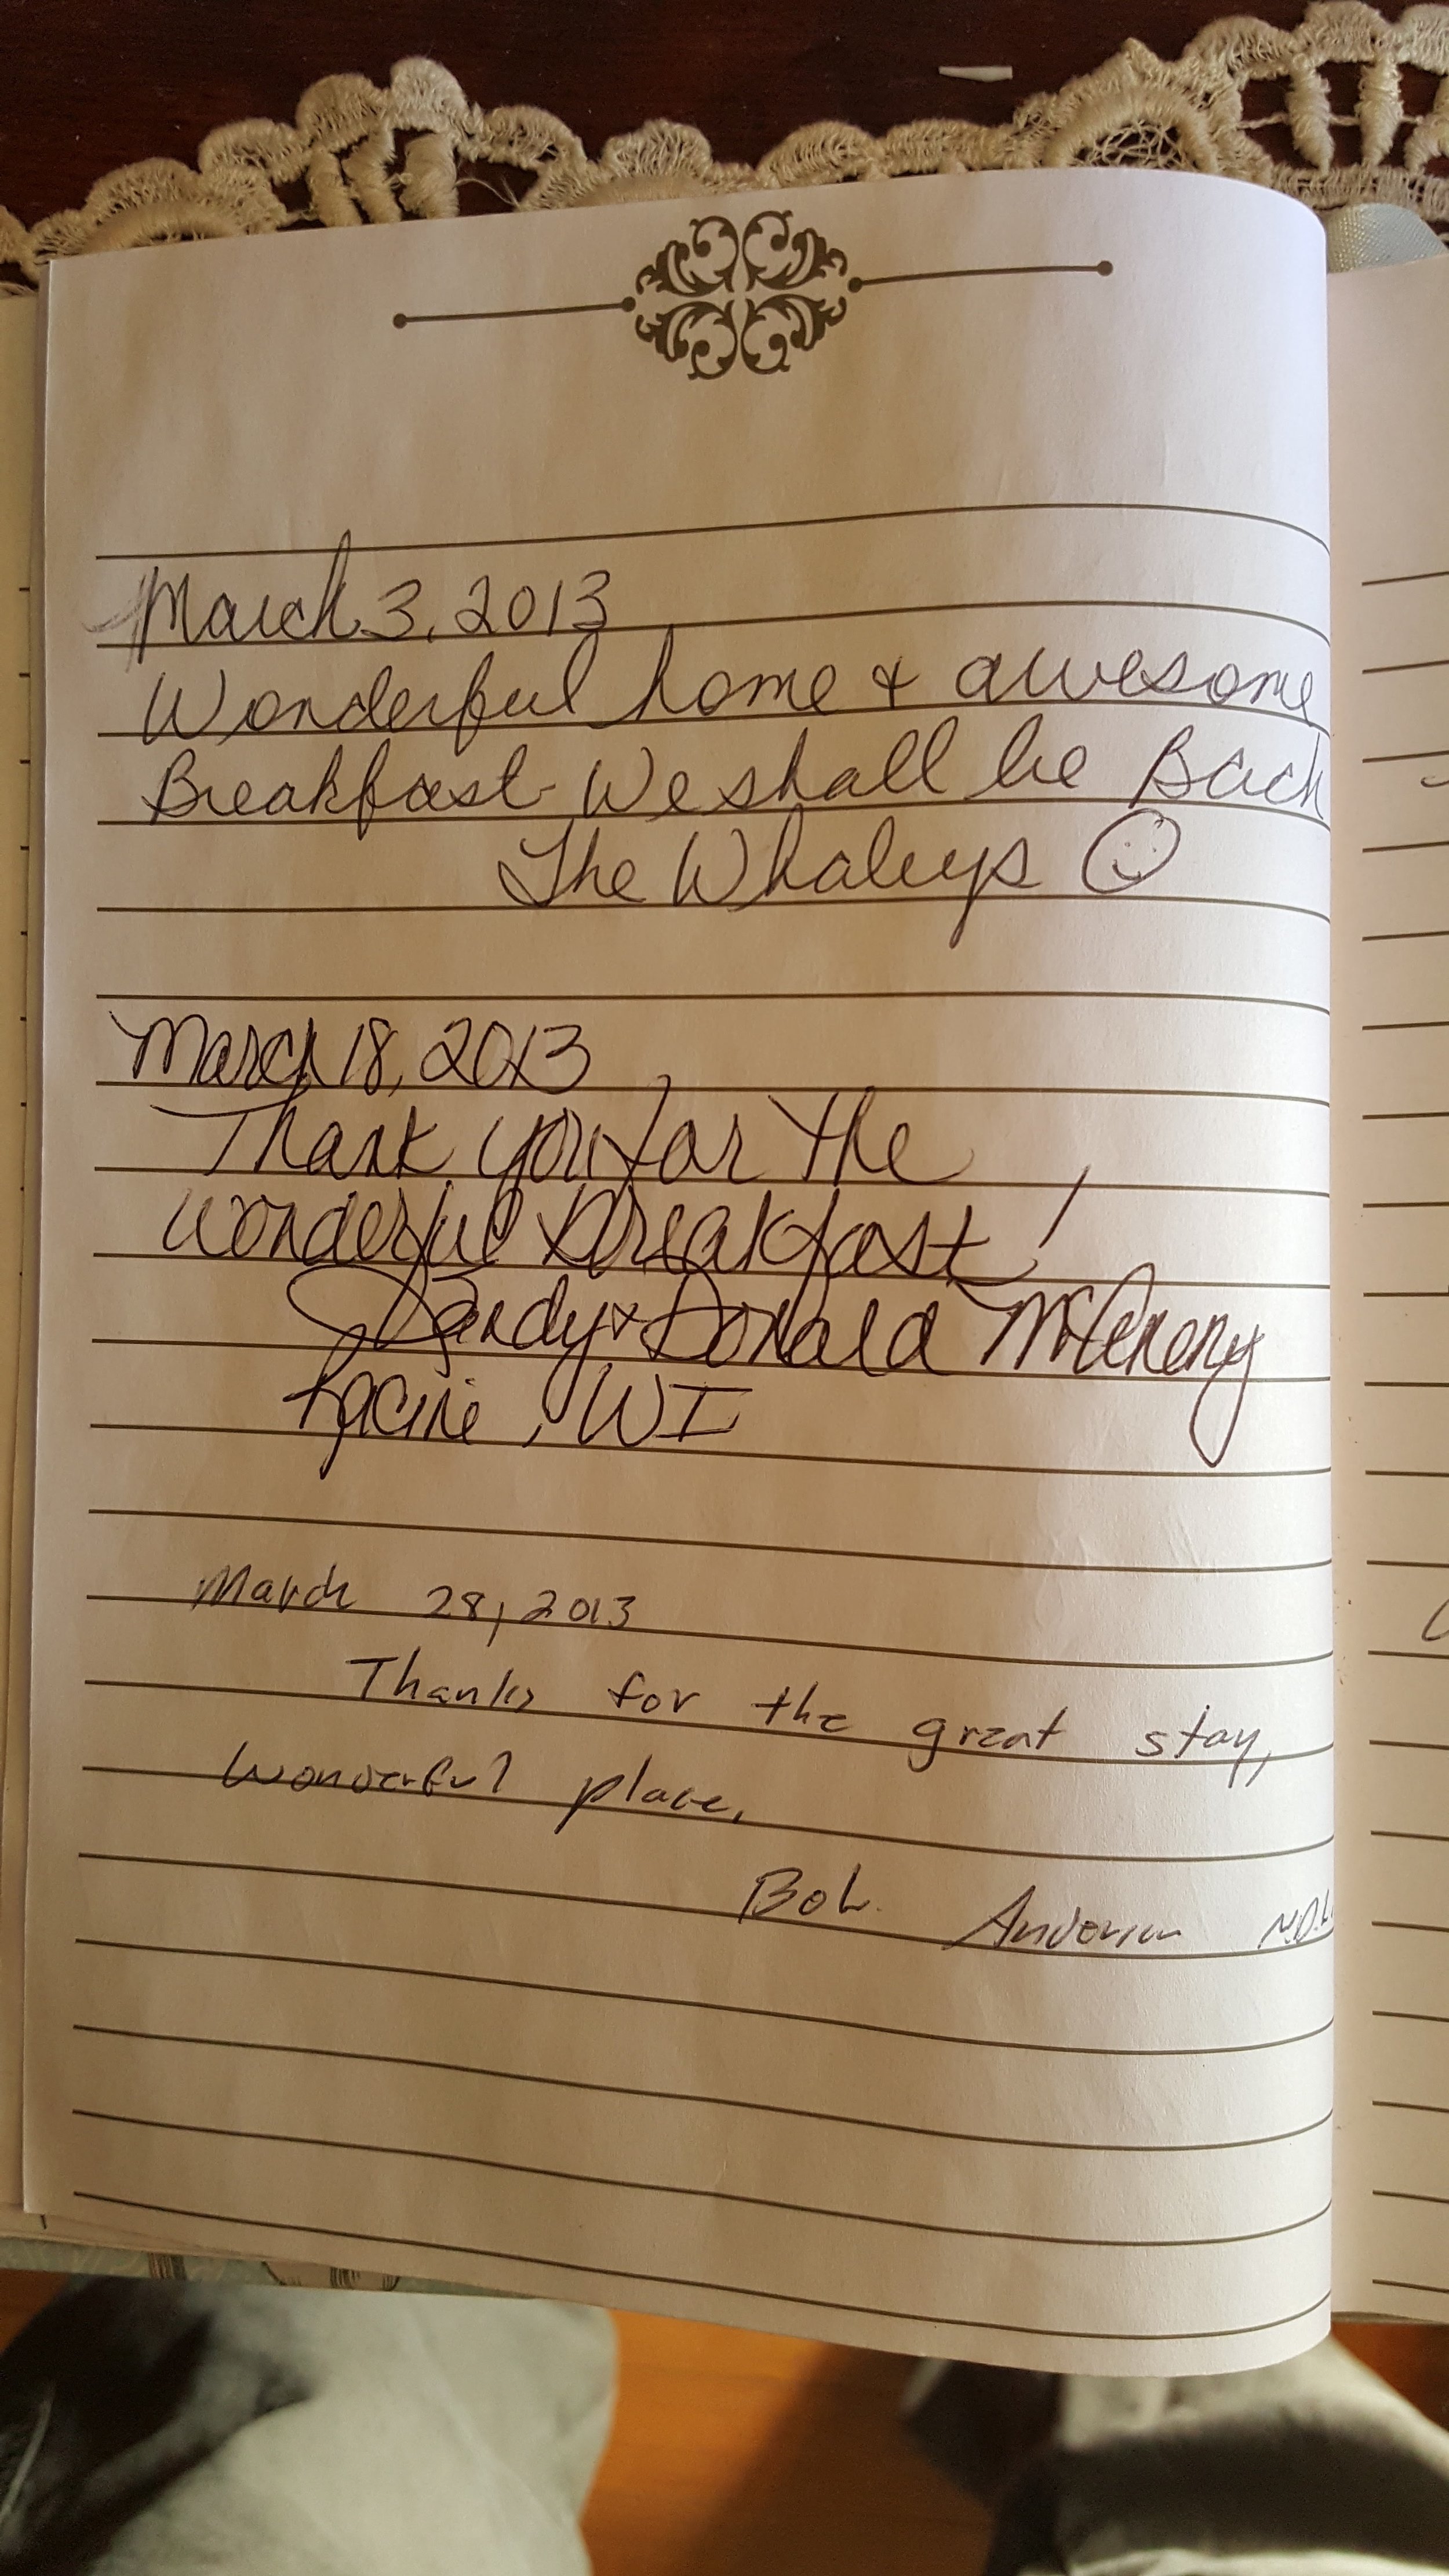 March 3, 2013
Wonderful home & awesome
Breakfast We shall be Back
The Whaleys
March 18, 2013
Thank you for the
wonderful breakfast!
Sandy & Donald McEneny
Racine, WI
March 28, 2013
Thanks for the great stay,
Wonderful place.
Bob Anderson